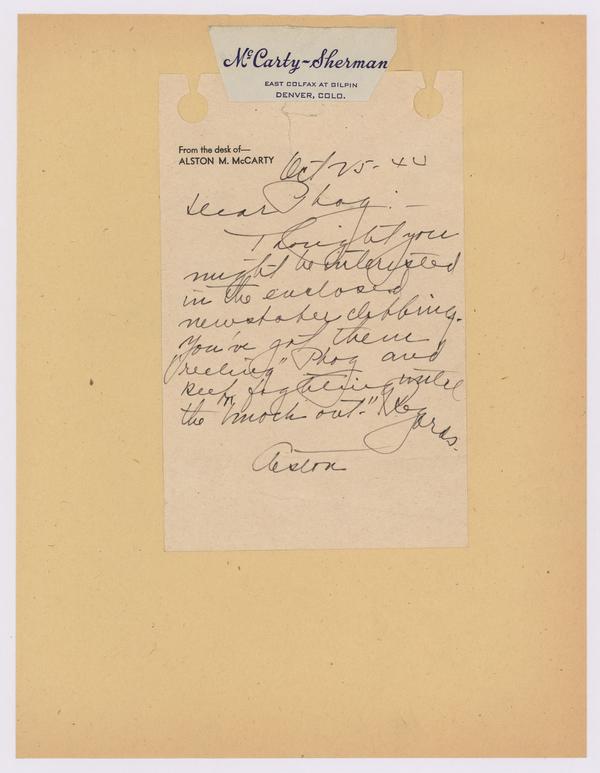 McCarty-Sherman
EAST COLFAX AT GILPIN
DENVER, COLO.
From the desk of—
ALSTON M. McCARTY
Oct 25-44
Dear Phog:-
Thought you
might be interested
in the enclosed
newspaper clipping.
You've got them
"reeling" Phog and
keep fogging until
the "knock out." Regards.
Alston